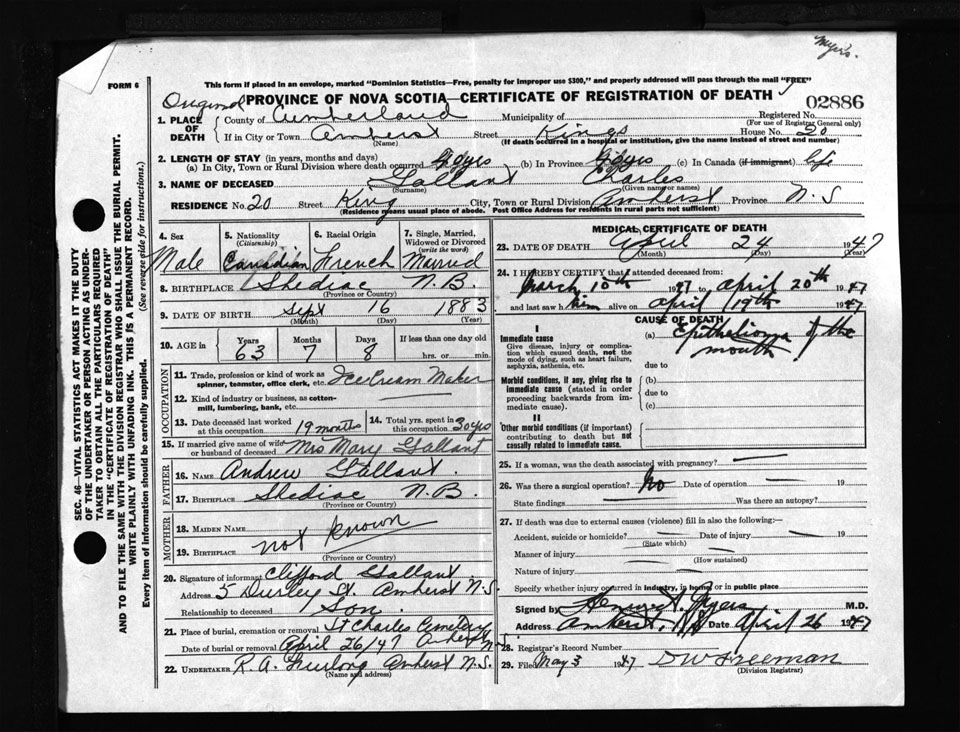 Myers.
FORM 6
This form if placed in an envelope, marked "Dominion Statistics—Free, penalty for improper use $300," and properly addressed will pass through the mail "FREE"
Original PROVINCE OF NOVA SCOTIA—CERTIFICATE OF REGISTRATION OF DEATH
02886
1. PLACE OF DEATH { County of Cumberland Municipality of Registered No.
(For use of Registrar General only)
If in City or Town Amherst Street Kings House No. 20
(Name) (If death occurred in a hospital or institution, give the name instead of street and number)
2. LENGTH OF STAY (in years, months and days)
(a) In City, Town or Rural Division where death occurred yrs (b) In Province yrs (c) In Canada (if immigrant) life
3. NAME OF DECEASED Gallant Charles
(Surname) (Given name or names)
RESIDENCE No. 20 Street King City, Town or Rural Division Amherst Province N.S
(Residence means usual place of abode. Post Office Address for residents in rural parts not sufficient)
4. Sex Male
5. Nationality (Citizenship) Canadian
6. Racial Origin French
7. Single, Married, Widowed or Divorced (write the word) Married
8. BIRTHPLACE Shediac N.B.
(Province or Country)
9. DATE OF BIRTH Sept 16 1883
(Month) (Day) (Year)
10. AGE in Years 63 Months 7 Days 8 If less than one day old hrs. or min.
OCCUPATION
11. Trade, profession or kind of work as spinner, teamster, office clerk, etc. Ice Cream Maker
12. Kind of industry or business, as cotton-mill, lumbering, bank, etc.
13. Date deceased last worked at this occupation 19 months
14. Total yrs. spent in this occupation 30 yrs
15. If married give name of wife or husband of deceased Mrs Mary Gallant
FATHER
16. NAME Andrew Gallant.
17. BIRTHPLACE Shediac N.B.
(Province or Country)
MOTHER
18. MAIDEN NAME
19. BIRTHPLACE not known
(Province or Country)
20. Signature of informant Clifford Gallant
Address 5 St. Amherst N.S.
Relationship to deceased Son.
21. Place of burial, cremation or removal St Charles Cemetery
Date of burial or removal April 26/47 Amherst N.S.
22. UNDERTAKER R.A. Furlong Amherst N.S.
(Name and address)
MEDICAL CERTIFICATE OF DEATH
23. DATE OF DEATH April 24 1947
(Month) (Day) (Year)
24. I HEREBY CERTIFY that I attended deceased from:
March 10th 1947 to April 20th 1947
and last saw him alive on April 19th 1947
CAUSE OF DEATH
I
Immediate cause
Give disease, injury or complication which caused death, not the mode of dying, such as heart failure, asphyxia, asthenia, etc.
(a) Epithelioma of the mouth
due to
Morbid conditions, if any, giving rise to immediate cause (stated in order proceeding backwards from immediate cause).
(b)
due to
(c)
II
Other morbid conditions (if important) contributing to death but not causally related to immediate cause.
25. If a woman, was the death associated with pregnancy?
26. Was there a surgical operation? No Date of operation 19
State findings Was there an autopsy?
27. If death was due to external causes (violence) fill in also the following:—
Accident, suicide or homicide? Date of injury 19
(State which)
Manner of injury
(How sustained)
Nature of injury
Specify whether injury occurred in industry, in home or in public place
Signed by Myers M.D.
Address Amherst, N.S Date April 26 1947
28. Registrar's Record Number
29. Filed May 3 1947 D W Freeman
(Division Registrar)
SEC. 46—VITAL STATISTICS ACT MAKES IT THE DUTY
OF THE UNDERTAKER OR PERSON ACTING AS UNDERTAKER
TO OBTAIN ALL THE PARTICULARS REQUIRED
IN THE "CERTIFICATE OF REGISTRATION OF DEATH"
AND TO FILE THE SAME WITH THE DIVISION REGISTRAR WHO SHALL ISSUE THE BURIAL PERMIT.
WRITE PLAINLY WITH UNFADING INK. THIS IS A PERMANENT RECORD.
Every item of information should be carefully supplied. (See reverse side for instructions.)